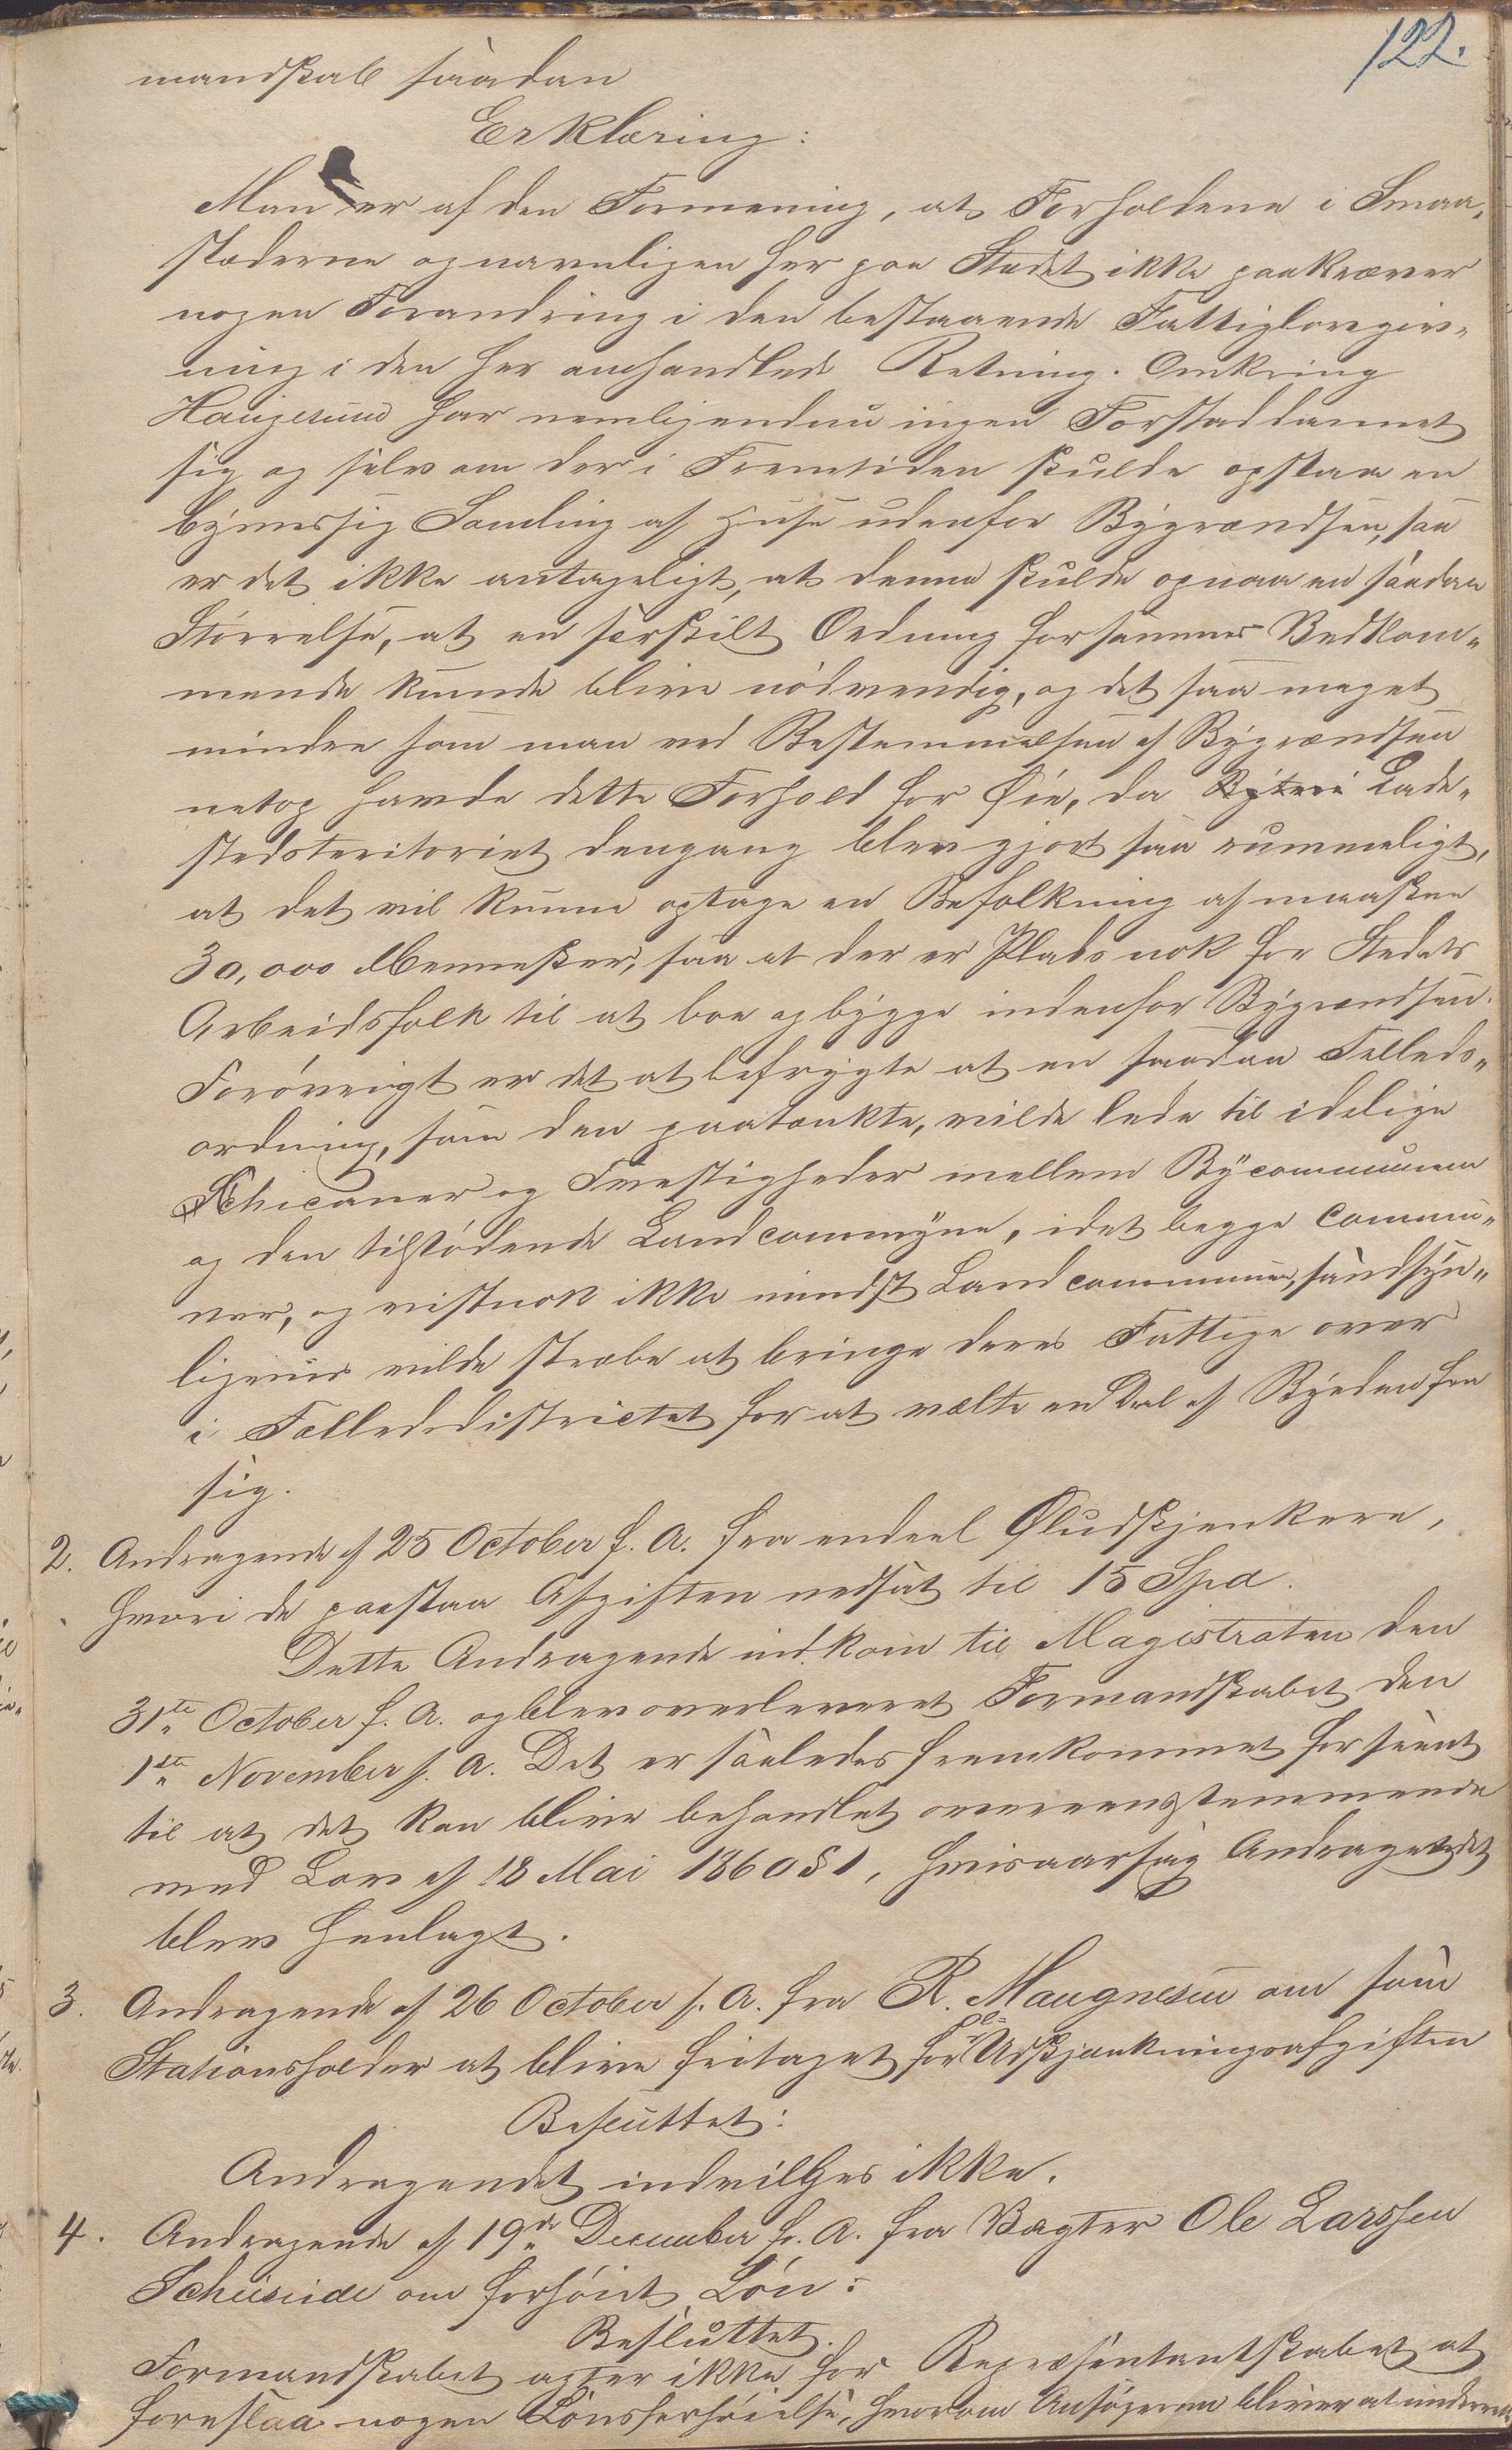 122.
mandskab saadan
Erklæring:
Man er af den Formening, at Forholdene i Smaa-
stæderne og navnligen her paa Stedet ikke paakræver
nogen Forandring i den bestaaende Fattiglovgiv-
ning i den her omhandlede Retning. Omkring
Haugesund har nemlig endnu ingen Forstad dannet
sig og selv om der i Fremtiden skulde opstaa en
bymessig Samling af Huse udenfor Bygrændsen, saa
er det ikke antageligt, at denne skulde opnaa en saadan
Størrelse, at en særskilt Ordning for sammes Vedkom-
mende kunde blive nødvendig, og det saa meget
mindre som man ved Bestemmelsen af Bygrændsen
netop havde dette Forhold for Øie, da Lade-
stedsteritoriet dengang blev gjort saa rummeligt,
at det vil kunne optage en Befolkning af maaskee
30,000 Mennesker, saa at der er Plads nok for Stedets
Arbeidsfolk til at boe og bygge indenfor Bygrændsen.
Forøvrigt er det at befrygte at en saadan Fælleds-
ordning, som den paatænkte, vilde lede til idelige
Chicaner og Tvestigheder mellem Bycommunen
og den tilstødende Landcommune, idet begge Commu-
ner, og vistnok ikke mindst Landcommunen, sandsyn-
ligviis vilde stræbe at bringe deres Fattige over
i Fælledsdistrictet for at vælte en Deel af Byrden fra
sig.
2. Andragende af 25 October f. A. fra endeel Øludskjenkere,
hvori de paastaa Afgiften nedsat til 15 Spd.
Dette Andragende indkom til Magistraten den
31te October f. A. og blev overleveret Formandskabet den
1ste November f. A. Det er saaledes fremkommet for seent
til at det kan blive behandlet overeensstemmende
med Lov af 18 Mai 1860 § 1, hvisaarsag Andragendet
blev henlagt.
3. Andragende af 26 October f. A. fra R. Maugnesen om som
Stationsholder at blive fritaget for Øl-Udskjenkningsafgiften
Besluttet:
Andragendet indvilges ikke.
4. Andragende af 19de December f. A. fra Vægter Ole Larssen
om forhøiet Løn:
Besluttet.
Formandskabet agter ikke for Repræsentantskabet at
foreslaa nogen Lønsforhøielse, hvorom Ansøgeren bliver at underrette